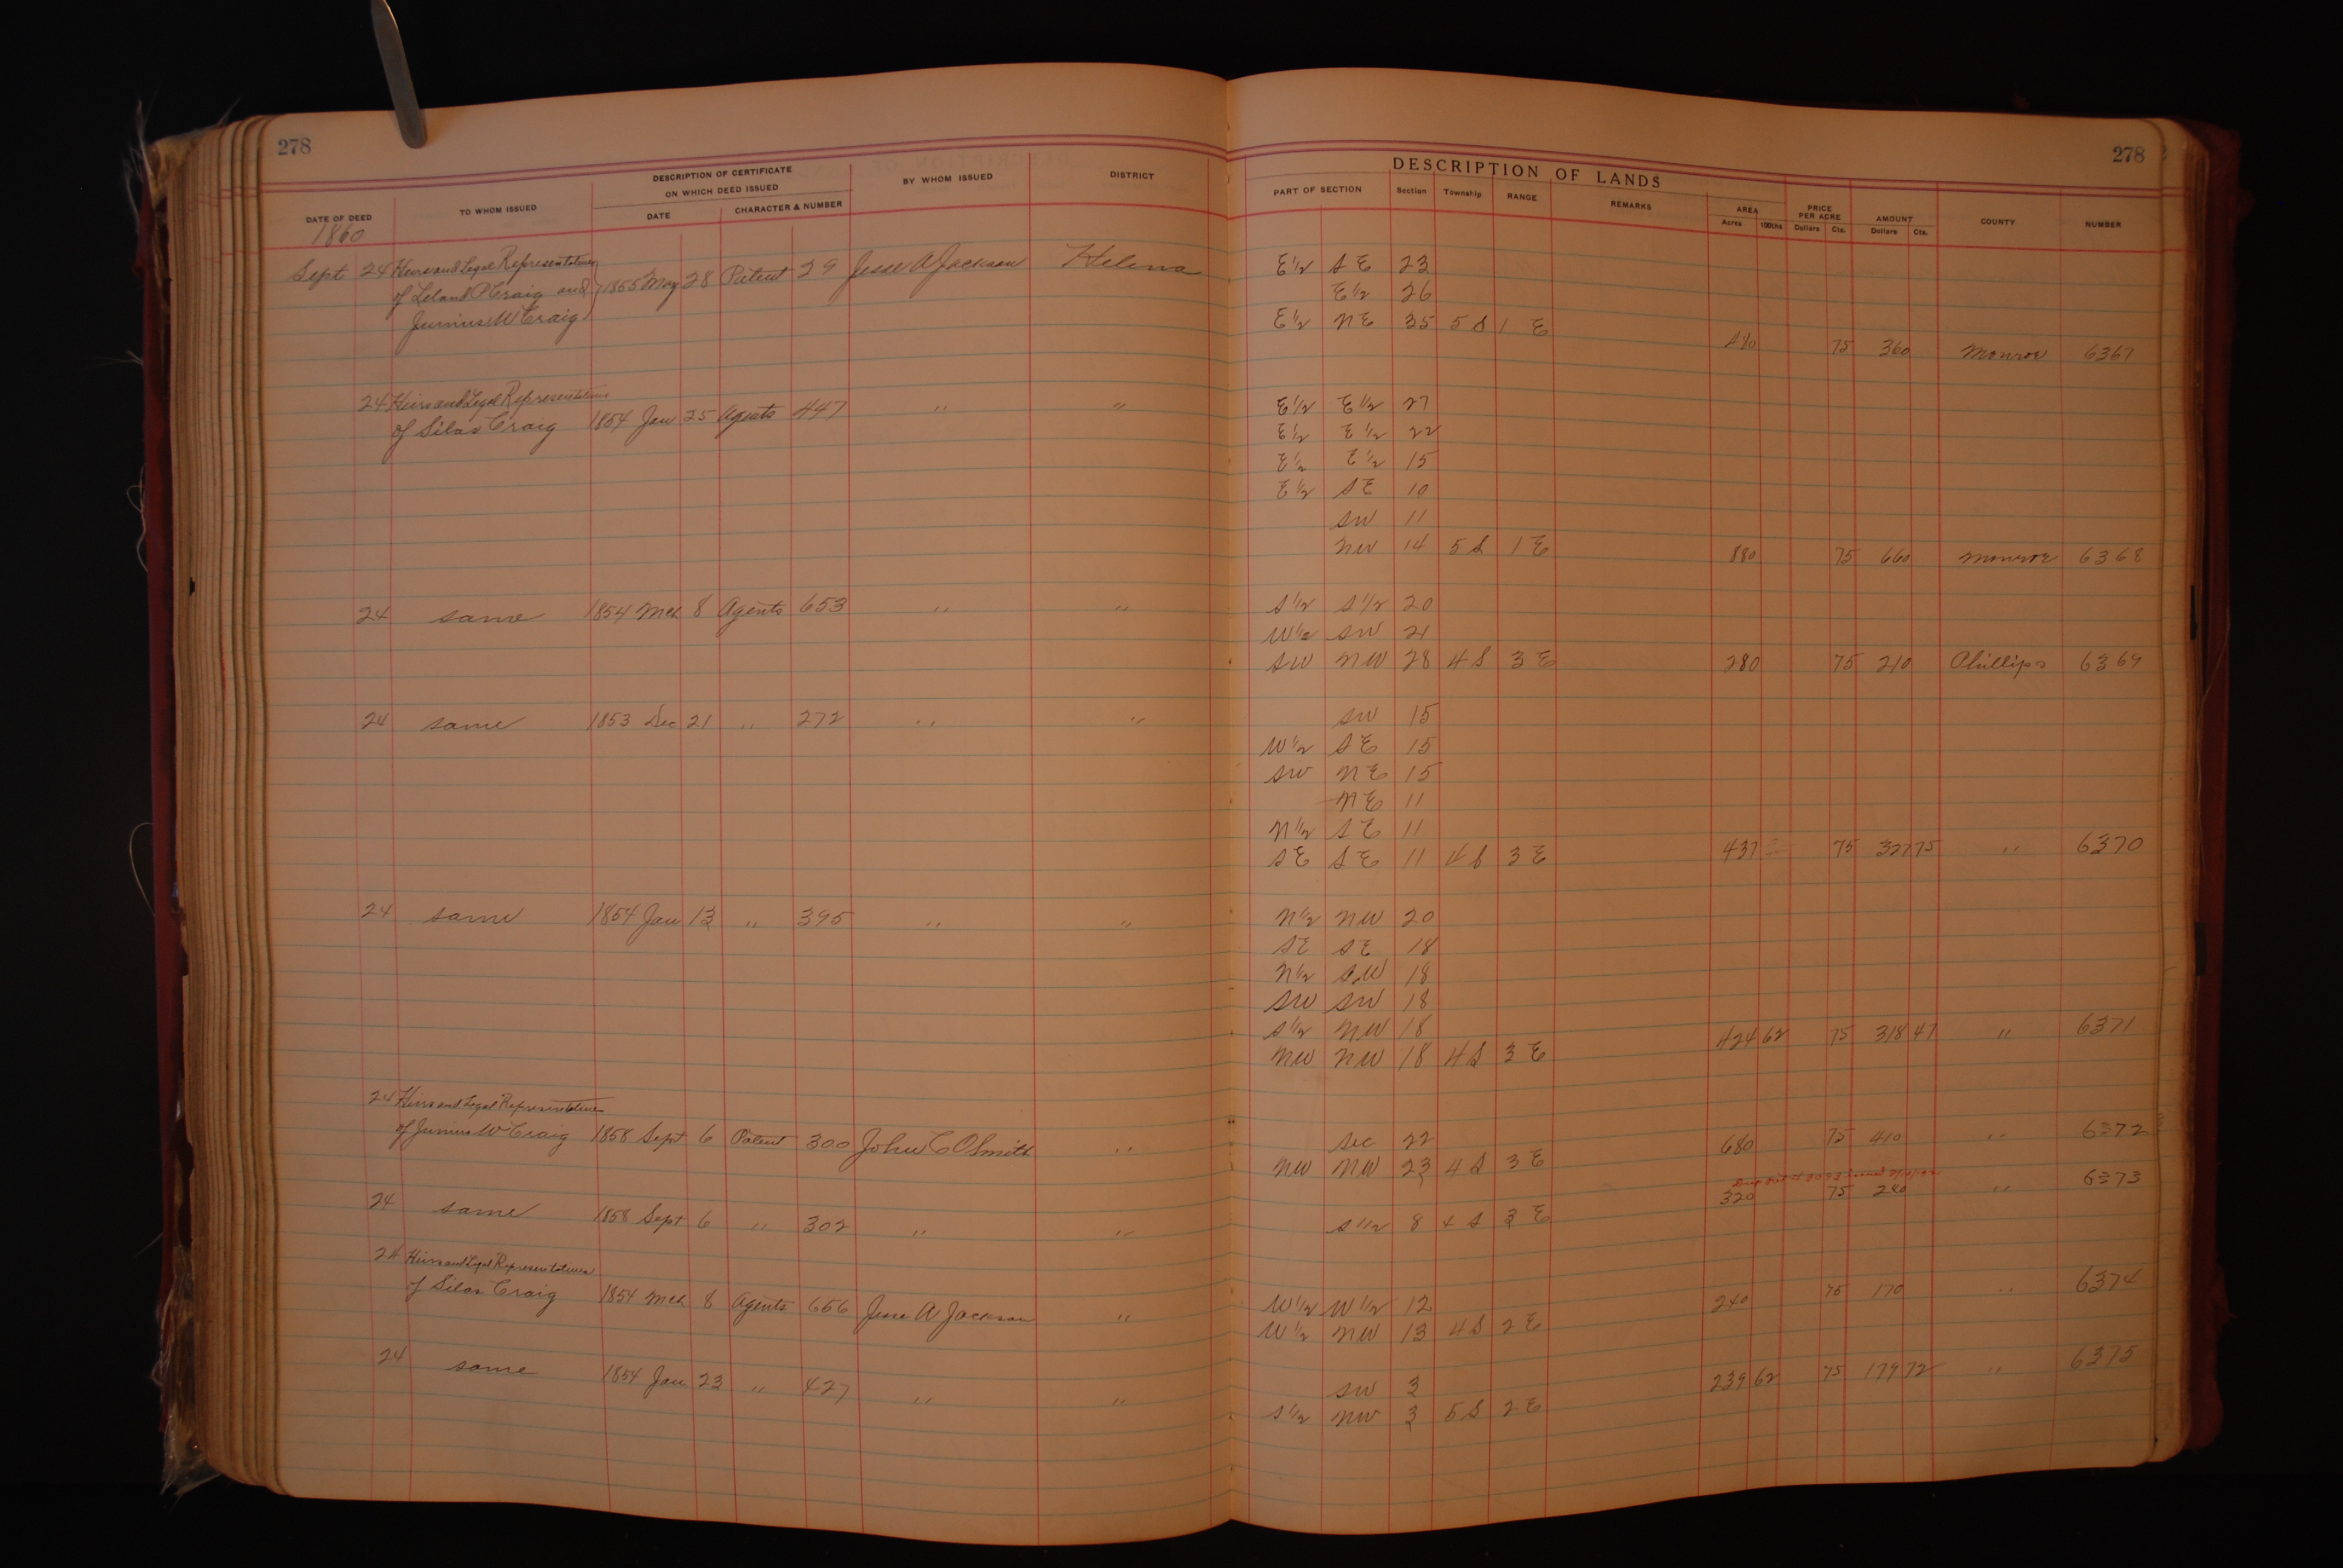 278
DATE OF DEED
TO WHOM ISSUED
DESCRIPTION OF CERTIFICATE
ON WHICH DEED ISSUED
DATE
CHARACTER & NUMBER
BY WHOM ISSUED
DISTRICT
1860
Sept 24 Heirs and Legal Representatives
of Leland P Craig and
Junius W Craig
1855 May 28 Patent 29 Jesse A Jackson Helena
24 Heirs and Legal Representatives
of Silas Craig 1854 Jan 25 Agents 447 " "
24 same 1854 Mch 8 Agents 653 " "
24 same 1853 Dec 21 " 272 " "
24 same 1854 Jan 13 " 395 " "
24 Heirs and Legal Representatives
of Junius W Craig 1858 Sept 6 Patent 300 John C O Smith "
24 same 1858 Sept 6 " 302 " "
24 Heirs and Legal Representatives
of Silas Craig 1854 Mch 8 Agents 656 Jesse A Jackson "
24 same 1854 Jan 23 " 427 " "
278
DESCRIPTION OF LANDS
PART OF SECTION
Section
Township
RANGE
REMARKS
AREA
Acres 100ths
PRICE
PER ACRE
Dollars Cts.
AMOUNT
Dollars Cts.
COUNTY
NUMBER
E 1/2 SE 23
E 1/2 26
E 1/2 NE 35 5 S 1 E 480 75 360 Monroe 6367
E 1/2 E 1/2 27
E 1/2 E 1/2 22
E 1/2 E 1/2 15
E 1/2 SE 10
SW 11
NW 14 5 S 1 E 880 75 660 Monroe 6368
S 1/2 S 1/2 20
W 1/2 SW 21
SW NW 28 4 S 3 E 280 75 210 Phillips 6369
SW 15
W 1/2 SE 15
SW NE 15
NE 11
N 1/2 SE 11
SE SE 11 4 S 3 E 437 75 327 75 " 6370
N 1/2 NW 20
SE SE 18
N 1/2 SW 18
SW SW 18
S 1/2 NW 18
NW NW 18 4 S 3 E 424 62 75 318 47 " 6371
Sec 22
NW NW 23 4 S 3 E 680 75 410 " 6372
S 1/2 8 4 S 3 E 320 75 240 " 6373
W 1/2 W 1/2 12
W 1/2 NW 13 4 S 2 E 240 75 170 " 6374
SW 3
S 1/2 NW 3 5 S 2 E 239 62 75 179 72 " 6375